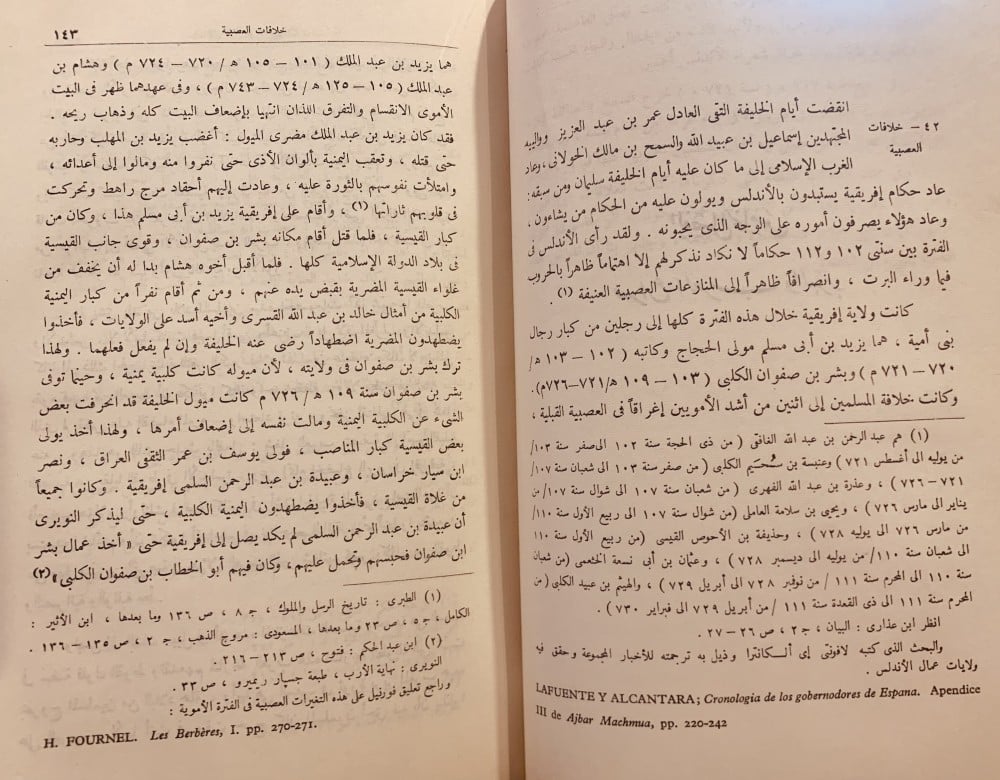 ٤٢ – خلافات
العصبية
انقضت أيام الخليفة التقى العادل عمر بن عبد العزيز وواليبه
المجتهدين إسماعيل بن عبيد الله والسمح بن مالك الخولانى، وعاد
الغرب الإسلامى إلى ما كان عليه أيام الخليفة سليمان ومن سبقه:
عاد حكام إفريقية يستبدون بالأندلس ويولون عليه من الحكام من يشاءون،
وعاد هؤلاء يصرفون أموره على الوجه الذى يحبونه . ولقد رأى الأندلس فى
الفترة بين سنتى ١٠٢ و١١٢ حكاماً لا نكاد نذكر لهم إلا اهتماماً ظاهراً بالحروب
فيما وراء البرت ، وانصرافاً ظاهراً إلى المنازعات العصبية العنيفة (١) .
كانت ولاية إفريقية خلال هذه الفترة كلها إلى رجلين من كبار رجال
بنى أمية ، هما يزيد بن أبى مسلم مولى الحجاج وكاتبه ( ١٠٢ – ١٠٣ ه/
٧٢٠ – ٧٢١ م ) وبشر بن صفوان الكلبى ( ١٠٣ – ١٠٩ ه/٧٢١–٧٢٦م).
وكانت خلافة المسلمين إلى اثنين من أشد الأمويين إغراقاً فى العصبية القبلية ،
(١) هم عبد الرحمن بن عبد الله الغافقى ( من ذى الحجة سنة ١٠٢ الى صفر سنة ١٠٣/
من يوليه الى أغسطس ٧٢١ ) وعنبسة بن سُحَيم الكلبى ( من صفر سنة ١٠٣ الى شعبان سنة ١٠٧/
٧٢١ – ٧٢٦ ) ، وعذرة بن عبد الله الفهرى ( من شعبان سنة ١٠٧ الى شوال سنة ١٠٧/من
يناير الى مارس ٧٢٦ ) ، ويحيى بن سلامة العاملى (من شوال سنة ١٠٧ الى ربيع الأول سنة ١١٠/
من مارس ٧٢٦ الى يوليه ٧٢٨ ) ، وحذيفة بن الأحوص القيسى (من ربيع الأول سنة ١١٠
الى شعبان سنة ١١٠/ من يوليه الى ديسمبر ٧٢٨ ) ، وعثمان بن أبى نسعة الخثعمى (من شعبان
سنة ١١٠ الى المحرم سنة ١١١ / من نوفمبر ٧٢٨ الى أبريل ٧٢٩ ) ، والهيثم بن عبيد الكلبى ( من
محرم سنة ١١١ الى ذى القعدة سنة ١١١ / من أبريل ٧٢٩ الى فبراير ٧٣٠ ) .
انظر ابن عذارى : البيان ، ج ٢ ، ص ٢٦ – ٢٧ .
والبحث الذى كتبه لافونتى إى ألـكانترا وذيل به ترجمته للأخبار المجموعة وحقق فيه
ولايات عمال الأندلس .
LAFUENTE Y ALCANTARA; Cronologia de los gobernodores de Espana. Apendice
III de Ajbar Machmua, pp. 220-242
خلافات العصبية ١٤٣
هما يزيد بن عبد الملك ( ١٠١ – ١٠٥ ه / ٧٢٠ – ٧٢٤ م ) وهشام بن
عبد الملك (١٠٥ – ١٢٥ ه/ ٧٢٤– ٧٤٣ م ) ، وفى عهدهما ظهر فى البيت
الأموى الانقسام والتفرق اللذان انتهيا بإضعاف البيت كله وذهاب ريحه .
فقد كان يزيد بن عبد الملك مضرى الميول : أغضب يزيد بن المهلب وحاربه
حتى قتله ، وتعقب اليمنية بألوان الأذى حتى نفروا منه ومالوا إلى أعدائه ،
وامتلأت نفوسهم بالثورة عليه ، وعادت إليهم أحقاد مرج راهط وتحركت
فى قلوبهم ثاراتها (١) ، وأقام على إفريقية يزيد بن أبى مسلم هذا ، وكان من
كبار القيسية ، فلما قتل أقام مكانه بشر بن صفوان ، وقوى جانب القيسية
فى بلاد الدولة الإسلامية كلها . فلما أقبل أخوه هشام بدا له أن يخفف من
غلواء القيسية المضرية بقبض يده عنهم ، ومن ثم أقام نفراً من كبار اليمنية
الكلبية من أمثال خالد بن عبد الله القسرى وأخيه أسد على الولايات ، فأخذوا
يضطهدون المضرية اضطهاداً رضى عنه الخليفة وإن لم يفعل فعلهما . ولهذا
ترك بشر بن صفوان فى ولايته ، لأن ميوله كانت كلبية يمنية ، وحينما توفى
بشر بن صفوان سنة ١٠٩ ه / ٧٢٦ م كانت ميول الخليفة قد انحرفت بعض
الشىء عن الكلبية اليمنية ومالت نفسه إلى إضعاف أمرها ، ولهذا أخذ يولى
بعض القيسية كبار المناصب ، فولى يوسف بن عمر الثقفى العراق ، ونصر
ابن سيار خراسان ، وعبيدة بن عبد الرحمن السلمى إفريقية . وكانوا جميعاً
من غلاة القيسية ، فأخذوا يضطهدون اليمنية الكلبية ، حتى ليذكر النويرى
أن عبيدة بن عبد الرحمن السلمى لم يكد يصل إلى إفريقية حتى « أخذ عمال بشر
ابن صفوان فحبسهم وتحمل عليهم، وكان فيهم أبو الخطاب بن صفوان الكلبى» (٢)
(١) الطبرى : تاريخ الرسل والملوك ، ج ٨ ، ص ١٣٦ وما بعدها ، ابن الأثير :
الكامل ، ج ٥ ، ص ٢٣ وما بعدها ، المسعودى : مروج الذهب ، ج ٢ ، ص ١٣٥ – ١٣٦ .
(٢) ابن عبد الحكم : فتوح ، ص ٢١٣ – ٢١٦ .
النويرى : نهاية الأرب ، طبعة جسپار ريميرو ، ص ٣٣ .
وراجع تعليق فورنيل على هذه التغيرات العصبية فى الفترة الأموية :
H. FOURNEL. Les Berbères, I. pp. 270-271.